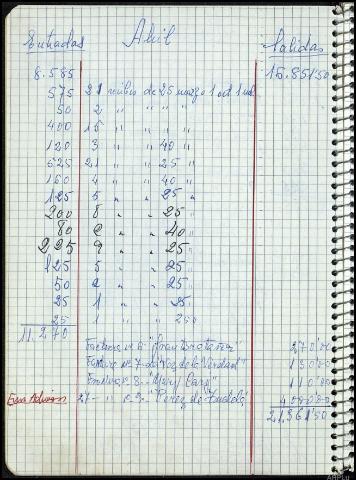 Entradas Abril Salidas
8.585 16.851'50
575 21 recibos de 25 marzo
50 2 " " " "
400 15 " " " "
120 3 " " 40 "
525 21 " " 25 "
160 4 " " 40 "
125 5 " " 25 "
200 8 " " 25 "
80 2 " " 40 "
225 9 " " 25 "
125 5 " " 25 "
50 2 " " 25 "
25 1 " " 25 "
25 1 " " 250
11.270
Factura nº 6 " 270'00
Factura nº 7 " de la Verdad" 130'00
Factura nº 8 - "Mary Cruz" 110'00
27 - " nº 9 - "Perez de Tudela" 4.000'00
21.361'50
ARPLU